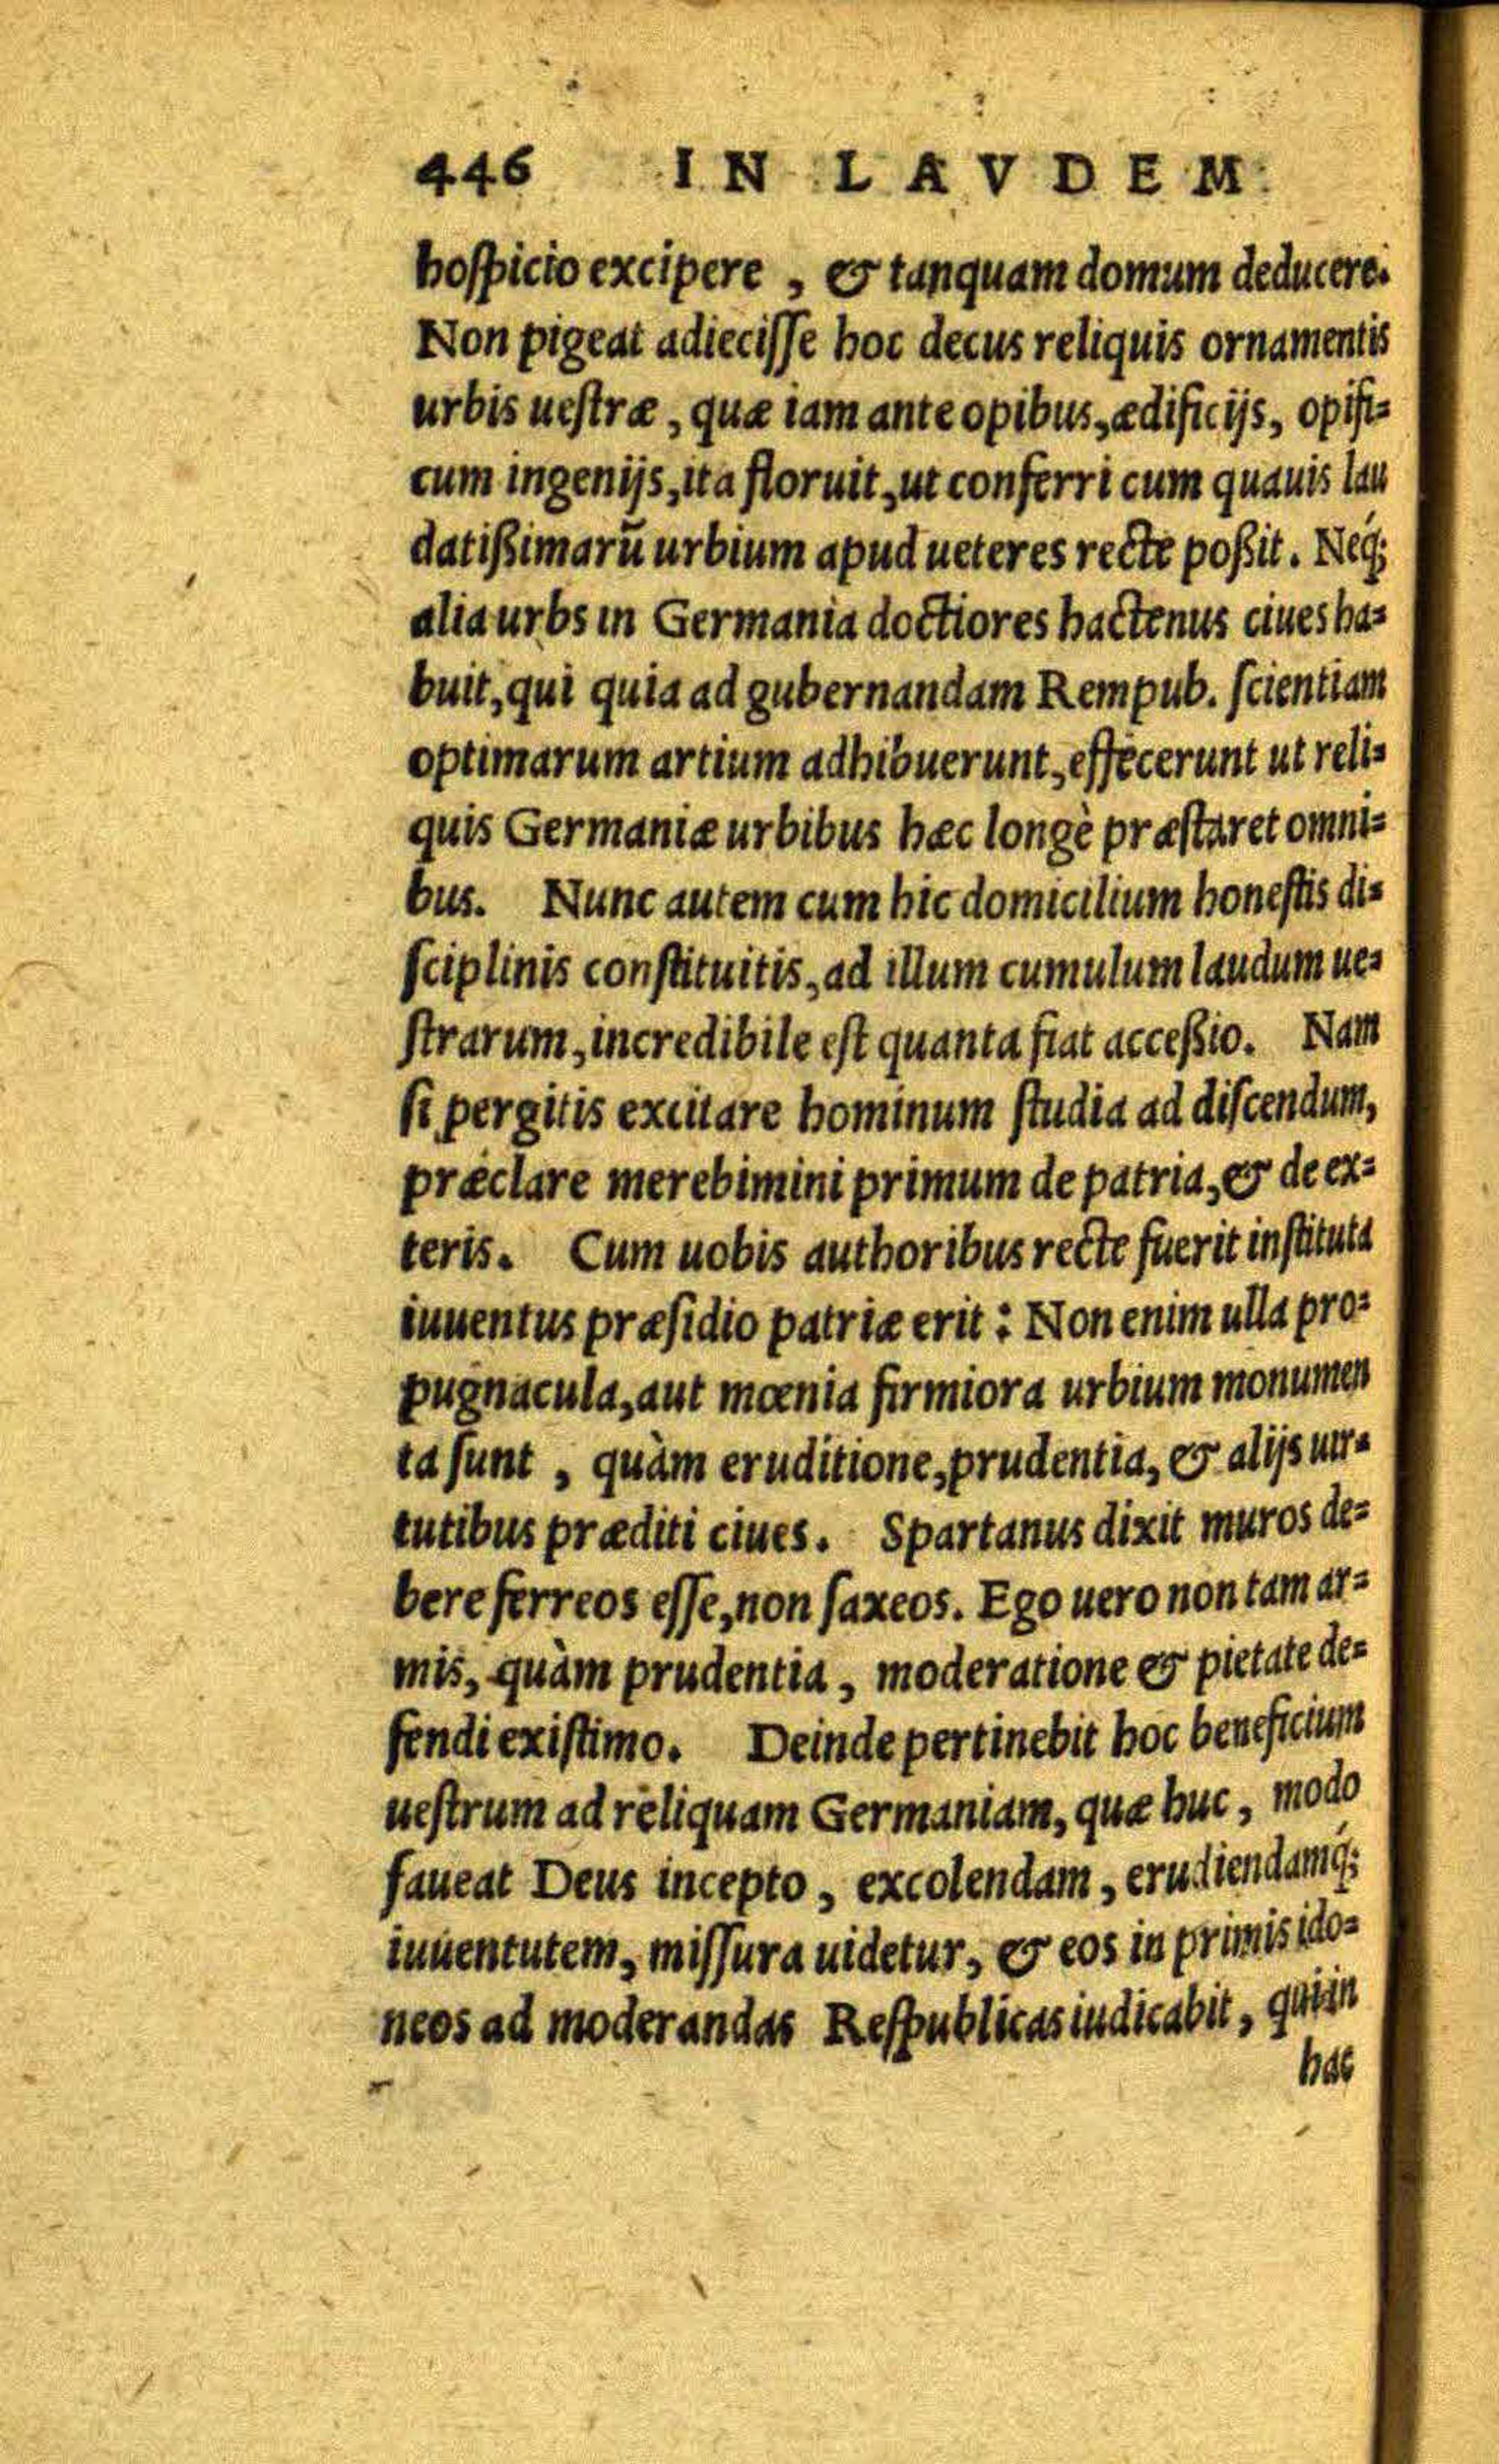 446 IN LAVDEM
hoſpicio excipere, & tanquam domum deducere.
Non pigeat adieciſſe hoc decus reliquis ornamentis
urbis ueſtræ, quæ iam ante opibus, ædificijs, opifi=
cum ingenijs, ita floruit, ut conferri cum quauis lau
datißimarũ urbium apud ueteres recte poßit. Neq́;
alia urbs in Germania doctiores hactenus ciues ha=
buit, qui quia ad gubernandam Rempub. ſcientiam
optimarum artium adhibuerunt, effecerunt ut reli=
quis Germaniæ urbibus hæc longè præſtaret omni=
bus. Nunc autem cum hic domicilium honeſtis di=
ſciplinis conſtituitis, ad illum cumulum laudum ue=
ſtrarum, incredibile eſt quanta fiat acceßio. Nam
ſi pergitis excitare hominum ſtudia ad diſcendum,
præclare merebimini primum de patria, & de ex=
teris. Cum uobis authoribus recte fuerit inſtituta
iuuentus præſidio patriæ erit: Non enim ulla pro=
pugnacula, aut mœnia firmiora urbium monumen
ta ſunt, quàm eruditione, prudentia, & alijs uir=
tutibus præditi ciues. Spartanus dixit muros de=
bere ferreos eſſe, non ſaxeos. Ego uero non tam ar=
mis, quàm prudentia, moderatione & pietate de=
fendi exiſtimo. Deinde pertinebit hoc beneficium
ueſtrum ad reliquam Germaniam, quæ huc, modo
faueat Deus incepto, excolendam, erudiendamq́;
iuuentutem, miſſura uidetur, & eos in primis ido=
neos ad moderandas Reſpublicas iudicabit, qui in
hac